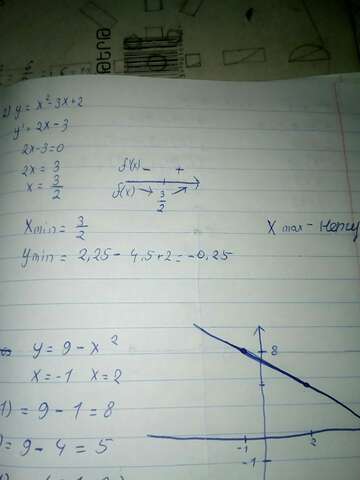 2) y = x² - 3x + 2
y' = 2x - 3
2x - 3 = 0
2x = 3
x = 3/2
f'(x) - +
f(x)
3/2
Xmin = 3/2
X max -
ymin = 2,25 - 4,5 + 2 = -0,25
y = 9 - x²
x = -1 x = 2
1) = 9 - 1 = 8
) = 9 - 4 = 5
8
-1 2
-1